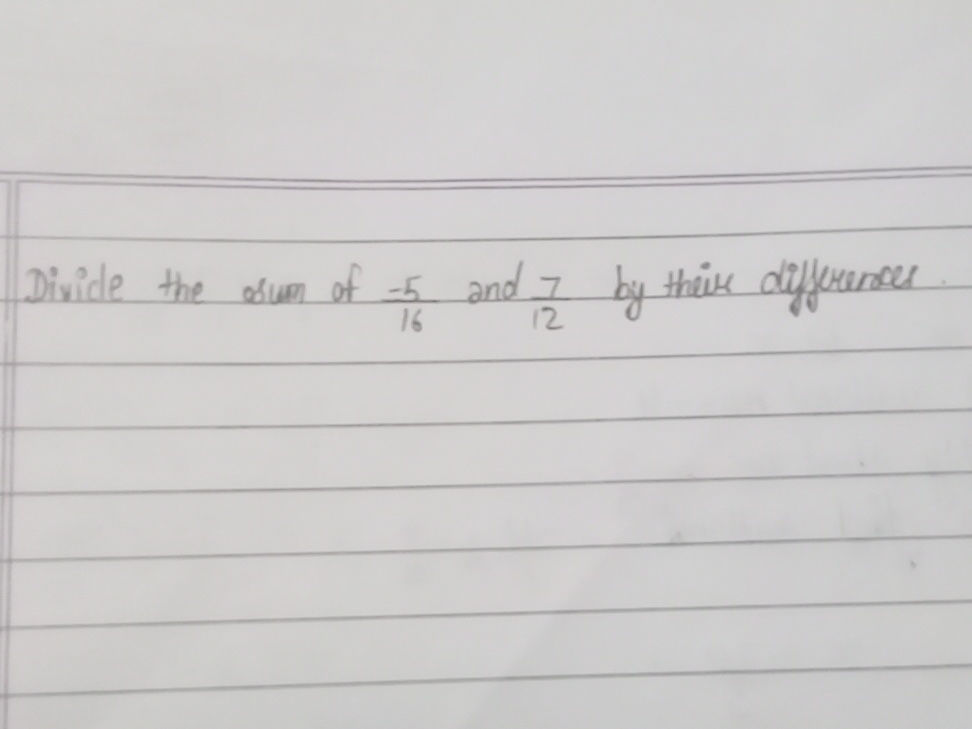 Divide the sum of -5/16 and 7/12 by their differences.